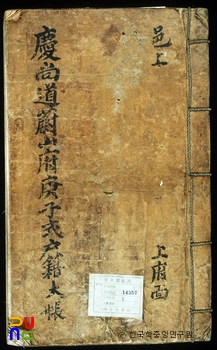 邑上
上府面
慶尙道蔚山府庚子式戶籍大帳
14987
1
PUNE
© 한국학중앙연구원